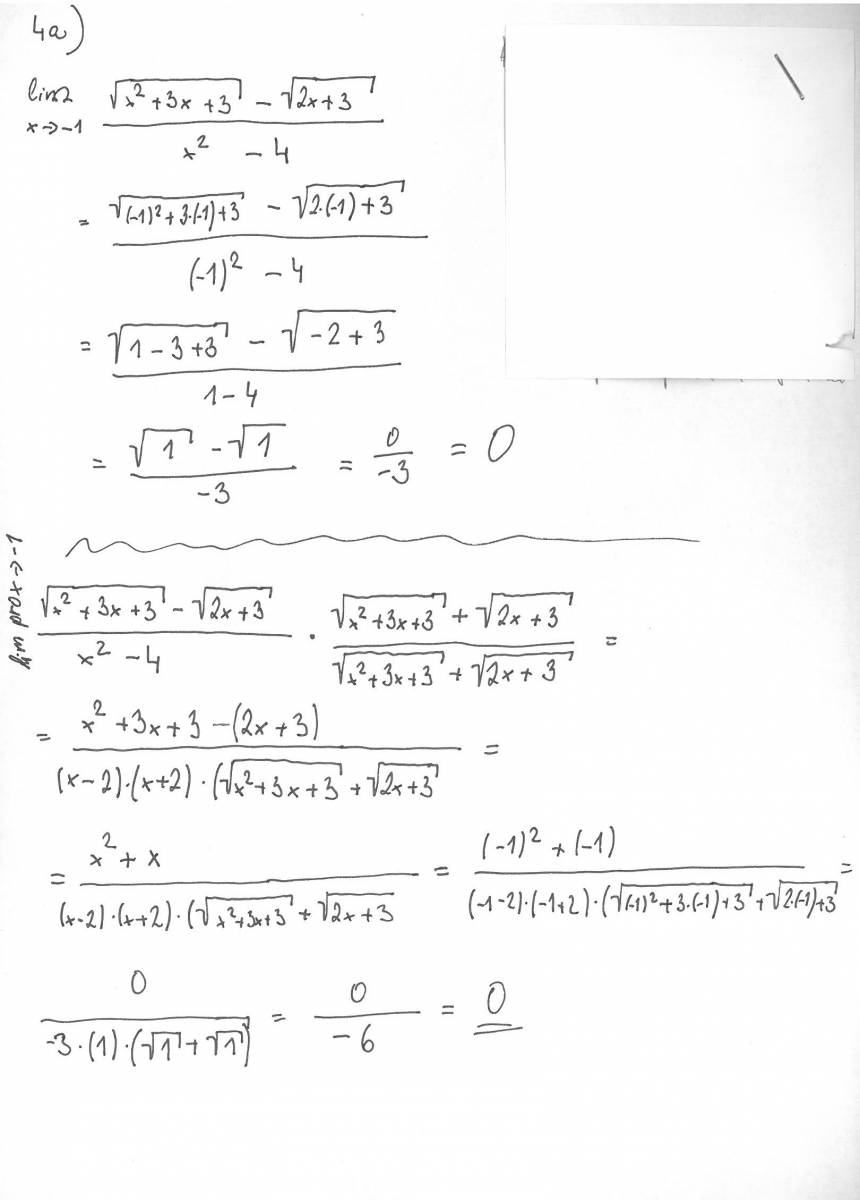 4a)
lim x→-1 (√(x² + 3x + 3) - √(2x + 3)) / (x² - 4)
= (√((-1)² + 3·(-1) + 3) - √(2·(-1) + 3)) / ((-1)² - 4)
= (√(1 - 3 + 3) - √(-2 + 3)) / (1 - 4)
= (√1 - √1) / (-3) = 0 / (-3) = 0
lim pro x→-1 (√(x² + 3x + 3) - √(2x + 3)) / (x² - 4) · (√(x² + 3x + 3) + √(2x + 3)) / (√(x² + 3x + 3) + √(2x + 3)) =
= (x² + 3x + 3 - (2x + 3)) / ((x - 2)·(x + 2)·(√(x² + 3x + 3) + √(2x + 3)) =
= (x² + x) / ((x - 2)·(x + 2)·(√(x² + 3x + 3) + √(2x + 3)) = ((-1)² + (-1)) / ((-1 - 2)·(-1 + 2)·(√((-1)² + 3·(-1) + 3) + √(2·(-1) + 3)) =
0 / (-3·(1)·(√1 + √1)) = 0 / (-6) = 0